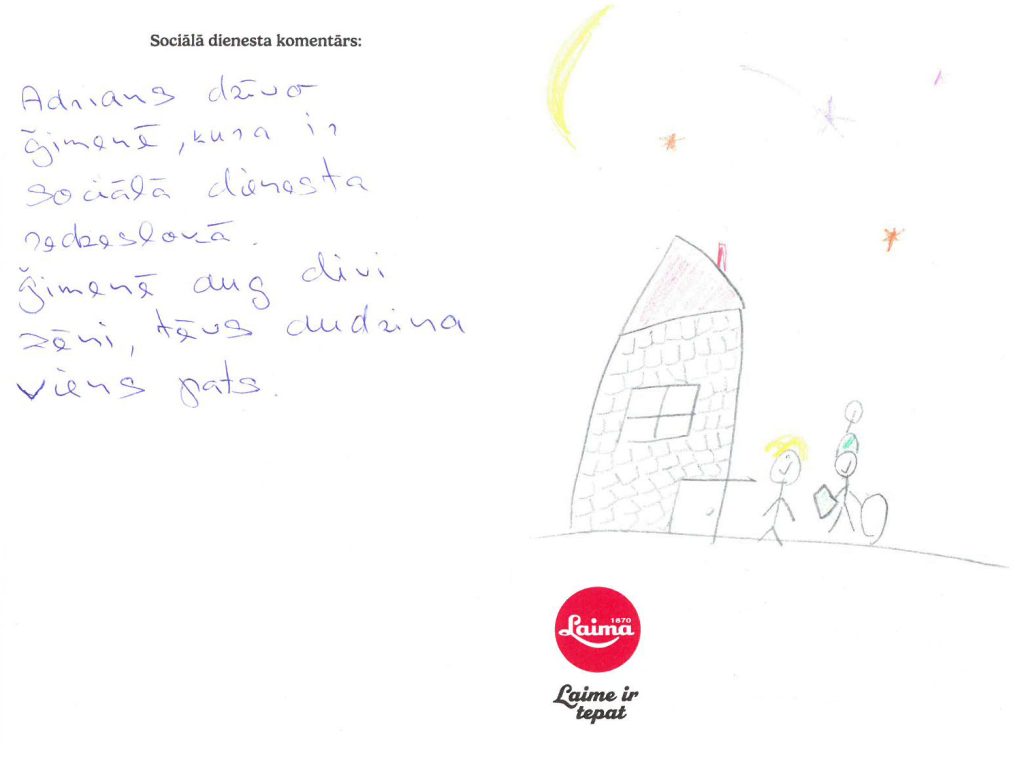 Sociālā dienesta komentārs:
Adrians dzīvo
ģimenē, kura ir
sociālā dienesta
redzeslokā.
Ģimenē aug divi
zēni, tēvs audzina
viens pats.
1870
Laima
Laime ir
tepat